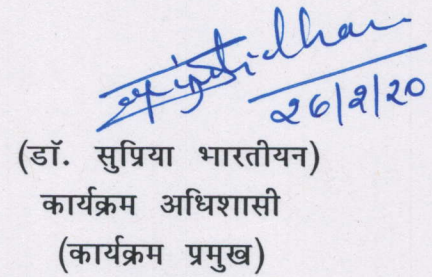 26/2/20
(डॉ. सुप्रिया भारतीयन)
कार्यक्रम अधिशासी
(कार्यक्रम प्रमुख)